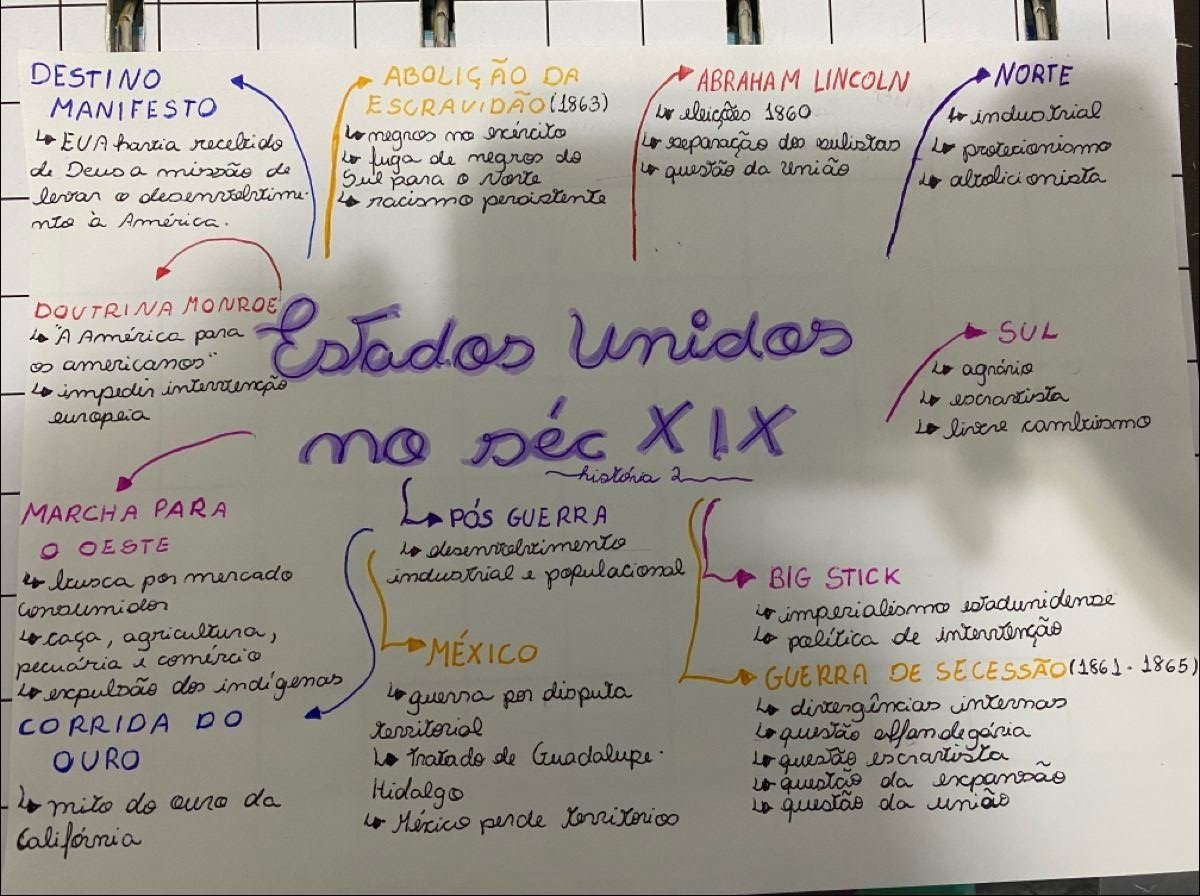 DESTINO
MANIFESTO
↳ EUA havia recebido
de Deus a missão de
levar o desenvolvime-
nto à América.
ABOLIÇÃO DA
ESCRAVIDÃO (1863)
↳ negros no exército
↳ fuga de negros do
Sul para o Norte
↳ racismo persistente
ABRAHAM LINCOLN
↳ eleições 1860
↳ separação dos sulistas
↳ questão da União
NORTE
↳ industrial
↳ protecionismo
↳ abolicionista
DOUTRINA MONROE
↳ "A América para
os americanos"
↳ impedir intervenção
europeia
Estados Unidos
no séc XIX
história 2
SUL
↳ agrário
↳ escravista
↳ livre cambismo
MARCHA PARA
O OESTE
↳ busca por mercado
consumidor
↳ caça, agricultura,
pecuária e comércio
↳ expulsão dos indígenas
CORRIDA DO
OURO
↳ mito do ouro da
Califórnia
PÓS GUERRA
↳ desenvolvimento
industrial e populacional
MÉXICO
↳ guerra por disputa
territorial
↳ Tratado de Guadalupe-
Hidalgo
↳ México perde territorios
BIG STICK
↳ imperialismo estadunidense
↳ política de intervenção
GUERRA DE SECESSÃO (1861 - 1865)
↳ divergências internas
↳ questão alfandegária
↳ questão escravista
↳ questão da expansão
↳ questão da união